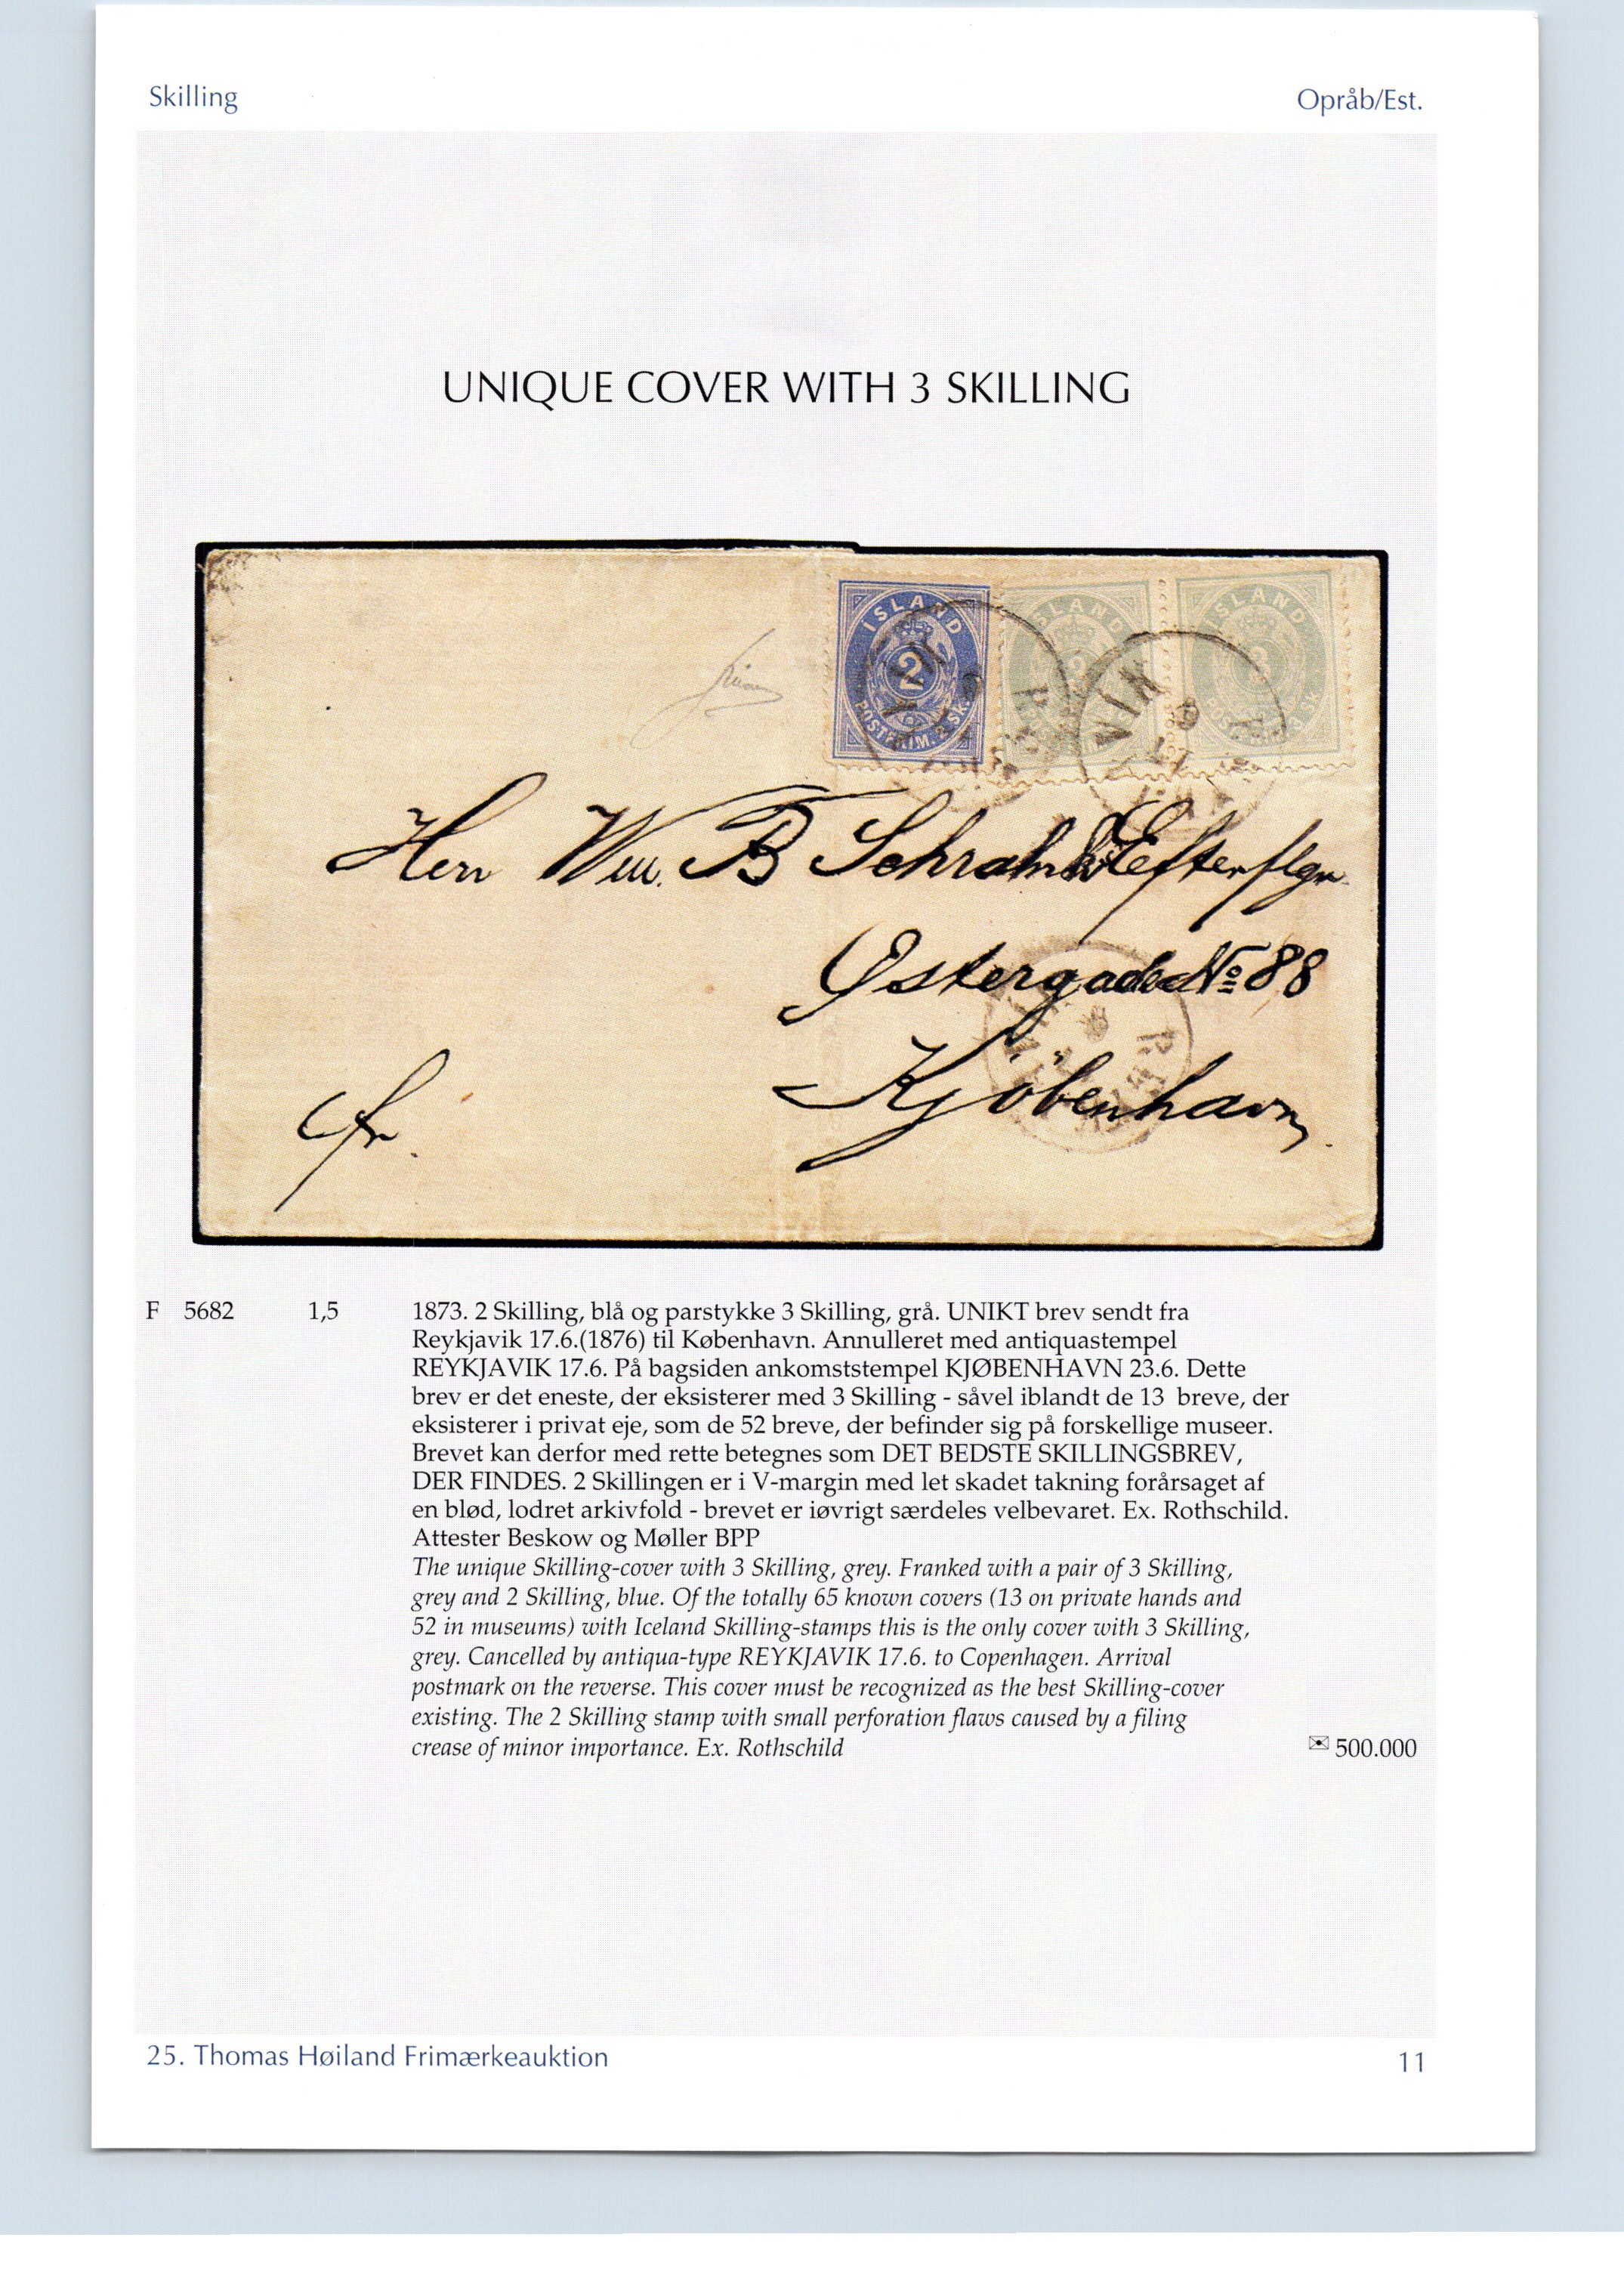 Skilling
Opråb/Est.
UNIQUE COVER WITH 3 SKILLING
ISLAND
2
POSTFRIM. 2 SK.
ISLAND
3
ISLAND
3
POSTFRIM. 3 SK.
Herr Wm. B Schrahns Efterflgr.
Østergade No 88
Kjöbenhavn
fr.
F 5682 1,5 1873. 2 Skilling, blå og parstykke 3 Skilling, grå. UNIKT brev sendt fra
Reykjavik 17.6.(1876) til København. Annulleret med antiquastempel
REYKJAVIK 17.6. På bagsiden ankomststempel KJØBENHAVN 23.6. Dette
brev er det eneste, der eksisterer med 3 Skilling - såvel iblandt de 13 breve, der
eksisterer i privat eje, som de 52 breve, der befinder sig på forskellige museer.
Brevet kan derfor med rette betegnes som DET BEDSTE SKILLINGSBREV,
DER FINDES. 2 Skillingen er i V-margin med let skadet takning forårsaget af
en blød, lodret arkivfold - brevet er iøvrigt særdeles velbevaret. Ex. Rothschild.
Attester Beskow og Møller BPP
The unique Skilling-cover with 3 Skilling, grey. Franked with a pair of 3 Skilling,
grey and 2 Skilling, blue. Of the totally 65 known covers (13 on private hands and
52 in museums) with Iceland Skilling-stamps this is the only cover with 3 Skilling,
grey. Cancelled by antiqua-type REYKJAVIK 17.6. to Copenhagen. Arrival
postmark on the reverse. This cover must be recognized as the best Skilling-cover
existing. The 2 Skilling stamp with small perforation flaws caused by a filing
crease of minor importance. Ex. Rothschild
500.000
25. Thomas Høiland Frimærkeauktion
11